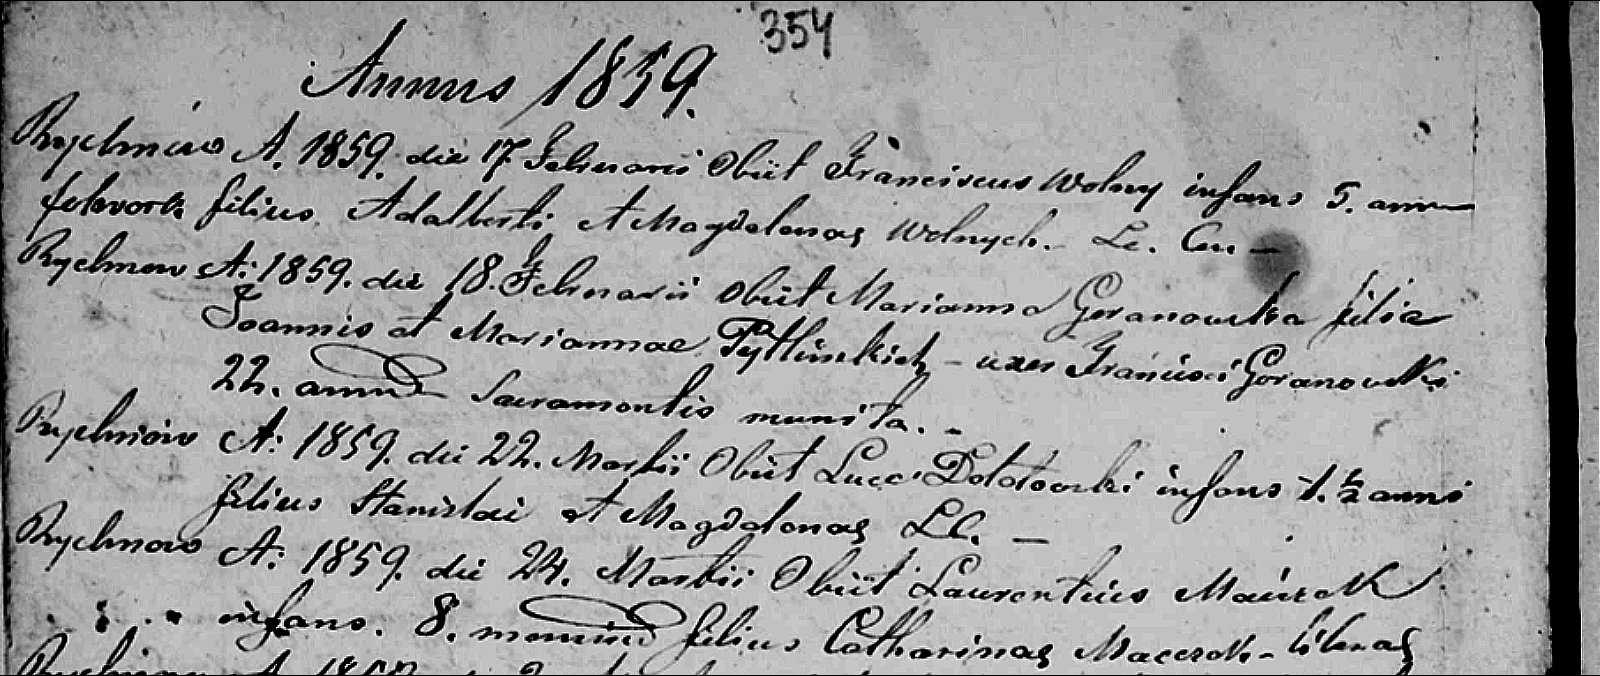 354
Annus 1859.
Rychnow A. 1859. die 17 Februarii Obiit Franciscus Wolny infans 5. ann
folwark filius Adalberti et Magdalenae Wolnych. - Lc. Cu. -
Rychnow A: 1859. die 18. Februarii Obiit Marianna Goranowska filia
Joannis et Mariannae Pytlinskich - uxor Francisci Goranowski
22. annor Sacramentis munita. -
Rychnow A: 1859. die 22. Martii Obiit Luca Dolatowski infans 1. ½ anni
filius Stanislai et Magdalenae LC. -
Rychnow A: 1859. die 24. Martii Obiit Laurentius
infans. 8. filius Catharinae - liberae
A. 1859